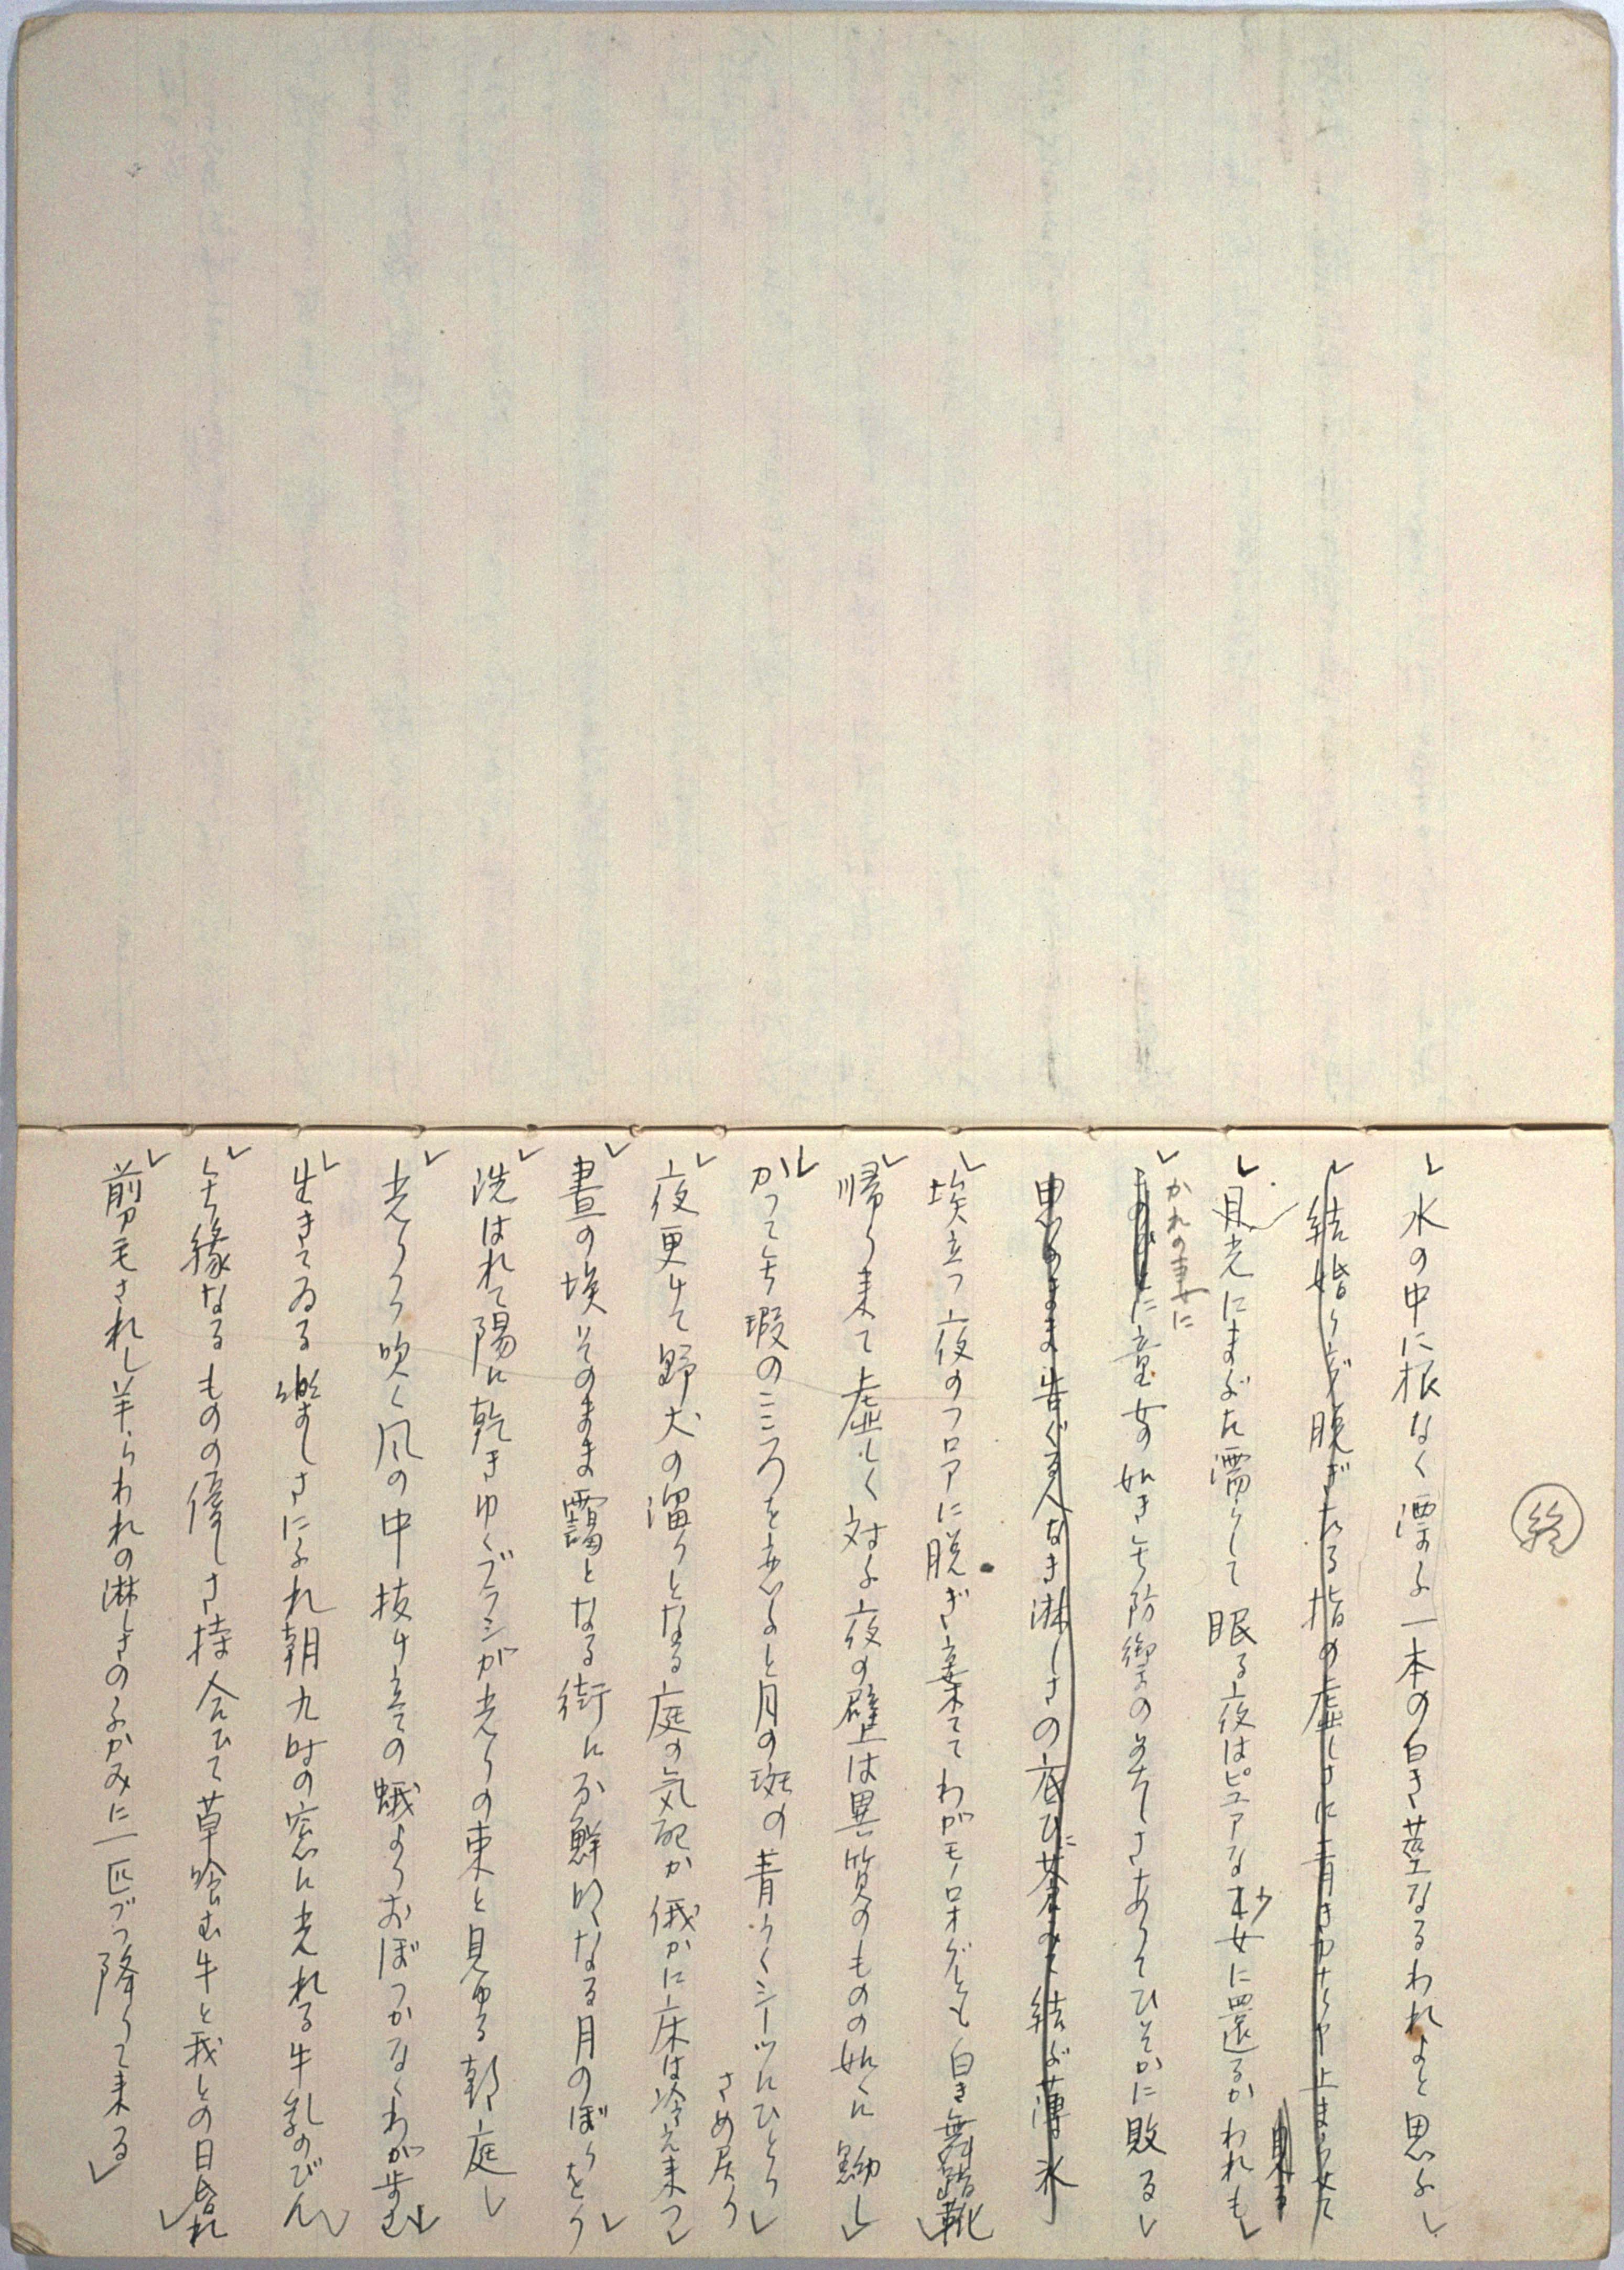 終
水の中に根なく漂ふ一本の白き茎なるわれよと思ふ
結婚りング脱ぎたる指の虚しさに青きかなりや止まらせて
月光にまぶた濡らして眠る夜はピュアな少女に還るかわれも
かれの妻に
に童女の如き無防禦の美しさありてひそかに敗る
思ひのまま告ぐる人なき淋しさの底ひに茶のみて結ぶ薄氷
埃立つ夜のフロアに脱ぎ棄ててわがモノロオグとも白き舞踏靴
帰り来て虚しく対ふ夜の壁上は異質のものの如くに黝し
かつて無瑕のこころを恋ふと月の斑の青うくシーツにひとり
さめ居り
夜更けて野犬の溜りとなる庭の気配か俄かに床は冷え来つ
晝の埃そのまま靄となる街にか鮮明なる月のぼりをり
洗はれて陽に乾きゆくブラシが光りの束と見ゆる朝庭
光りつつ吹く風の中抜け立ての蛾よりおぼつかなくわが歩む
生きてゐる楽しさにふれ朝九時の窓に光れる牛乳のびん
無縁なるものの優しさ持合ひて草喰む牛と我との日昏れ
剪毛されし羊らわれの淋しさのふかみに一匹づつ降りて来る